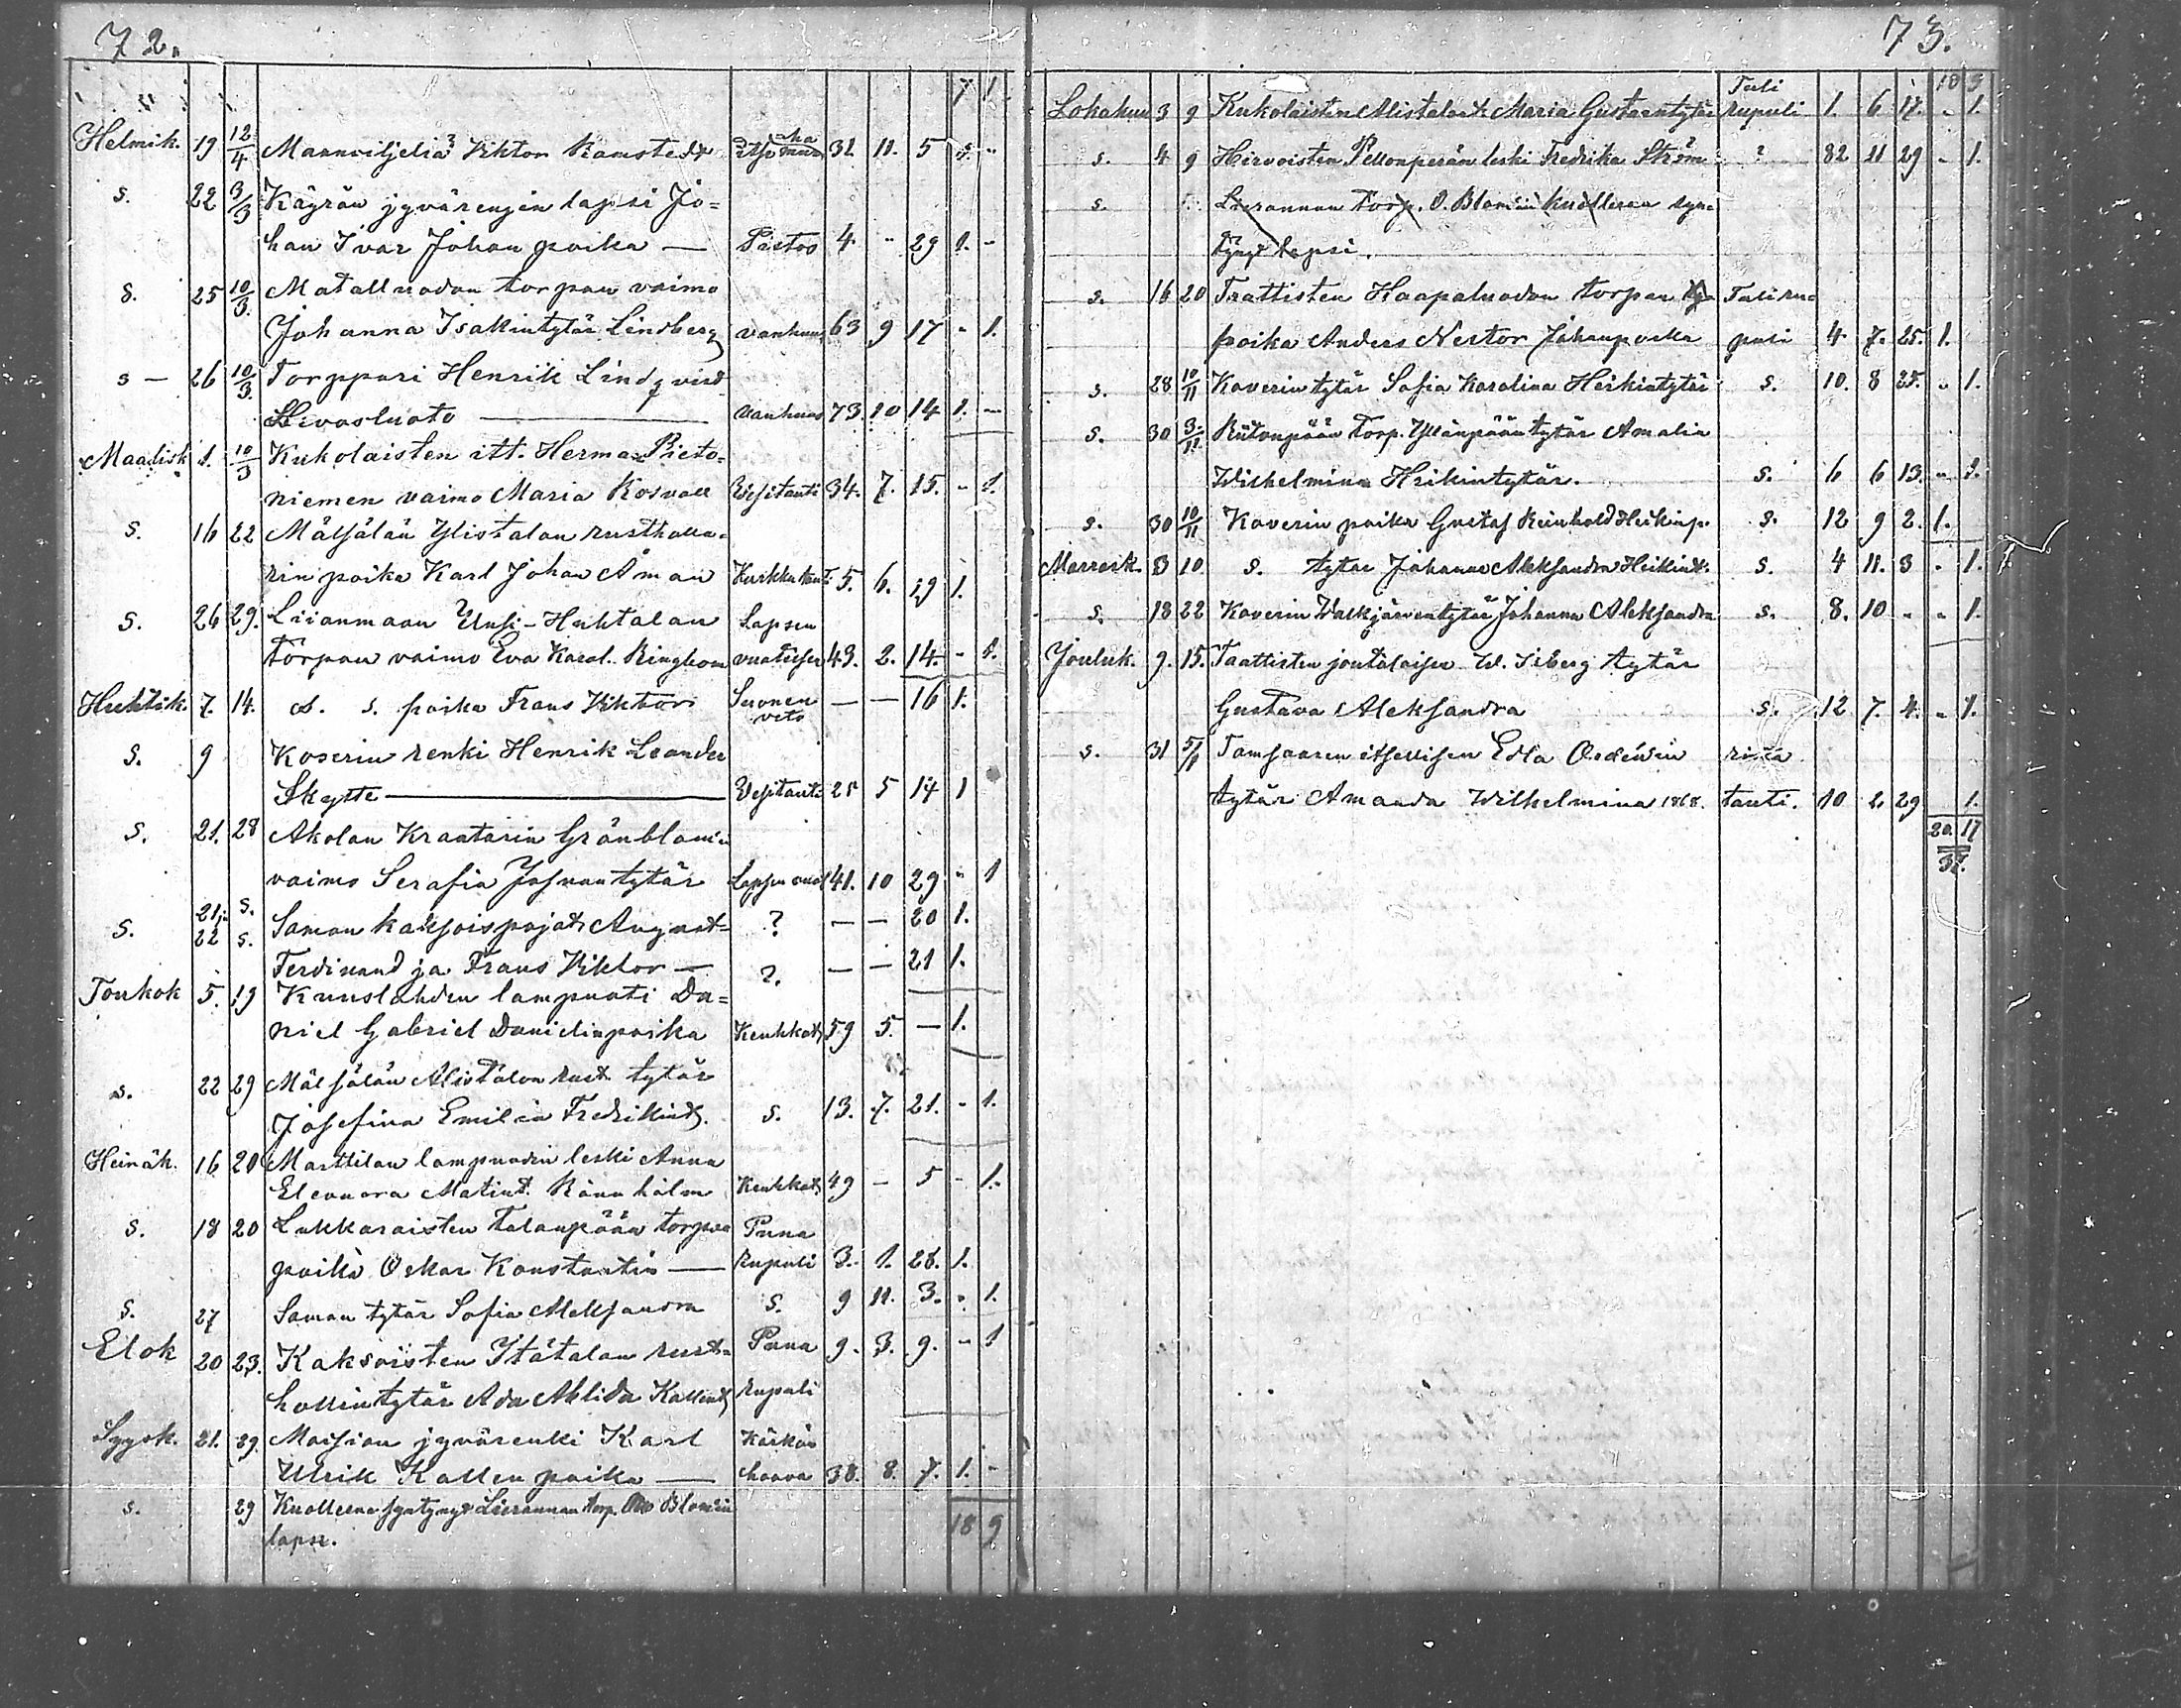 72.
7 1.
Helmik. 19 12/4 Maanviljeliä Viktor Ramstedt 32 11. 5 1. "
s. 22 3/3 Käyrän jyvärengin lapsi Jo=
han Ivar Johan poika — Pistos 4 " 29 1. -
s. 25 10/3. Mataluodon torpan vaimo
Johanna Isakintytär Lindberg vanhuus 63 9 17 " 1.
s — 26 10/3. Torppari Henrik Lindqvist
Hevosluoto — vanhuus 73. 10 14 1. —
Maalisk 1. 10/3 Kukolaisten itt. Herman Pieto=
niemen vaimo Maria Rosvall Vesitauti 34. 7. 15. - 1.
s. 16 22 Mälsälän Ylistalon rustholla=
rin poika Karl Johan Åman Kurkkutauti 5. 6. 19 1.
s. 26 29. Liianmaan Uusi-Huhtalan Lapsen
torpan vaimo Eva Karol. Ringbom vuoteesen 43. 2. 14. - 1.
Huhtik. 7. 14. s. s. poika Frans Viktori Suonen veto — — 16 1.
s. 9 Koserin renki Henrik Leander
Skytte — Vesitauti 25 5 14 1
s. 21. 28 Akolan Kraatarin Grönblomin
vaimo Serafia Josuantytär Lapsen vuot 41. 10 29 " 1
s. 21 ja 22 s. s. Saman kaksoispojat August= ? — — 20 1.
Ferdinand ja Frans Viktor — ?. — — 21 1.
Toukok 5. 19 Kuuslahden lampuoti Da=
niel Gabriel Danielinpoika Keuhkot. 59 5. — 1.
s. 22 29 Mälsälän Alistalon rust. tytär
Josefina Emilia Fredrikint. s. 13. 7. 21. - 1.
Heinäk. 16 20 Marttilan lampuodin leski Anna
Eleonora Matint. Rönnholm Keuhkot. 49 — 5 - 1.
s. 18 20 Lukkaraisten Talonpään torpan Puna
poika Oskar Konstantin — Rupuli 3. 1. 28. 1.
s. 27 Saman tytär Sofia Aleksandra s. 9 11. 3. " 1.
Elok 20 23. Kaksoisten Itätalon rust= Puna 9. 3. 9. - 1
hollin tytär Ada Alida Kallent. rupuli
Syysk. 21. 29. Moision jyvärenki Karl
Ulrik Kallen poika — haava 38. 8. 7. 1. -
s. 29 Kuolleena syntynyt Lierannan torp. Otto Blomin
lapsi.
18 9
73.
18 9
Lokakuu 3 9 Kukolaisten Alistalon t. Maria Gustaantytär Tuli rupuli 1. 6 17. - 1.
s. 4 9 Hirvoisten Pellonperän leski Fredrika Ström ? 82 11 29 - 1.
s. Lierannan torp. O. Blomin kuolleena syn=
tynyt lapsi.
s. 16 20 Trattisten Haapaluodon torpan Tuliru=
poika Anders Nestor Johanpoika puli 4. 7. 25. 1.
s. 28 10/11 Koverin tytär Sofia Karolina Heikintytär s. 10. 8 25. " 1.
s. 30 3/11. Riitonpään torp. Ylänpään tytär Amalia
Wilhelmina Heikintytär. s. 6 6 13. " 1.
s. 30 10/11 Koverin poika Gustaf Reinhold Heikinp. s. 12 9 2. 1.
Marrask. 3 10 s. tytär Johanna Aleksandra Heikint. s. 4 11. 3 - 1.
s. 18 22 Koverin Walkjärven tytär Johanna Aleksandra s. 8. 10 - - 1.
Jouluk. 9. 15. Taattisten joutilaisen W. Siberg tytär
Gustava Aleksandra s. 12 7. 4. " 1.
s. 31 5/1 Tamsaaren itsellisen Edla Ordénin rinta
tytär Amanda Wilhelmina 1868. tauti. 10 2 29 1.
20. 17
37.